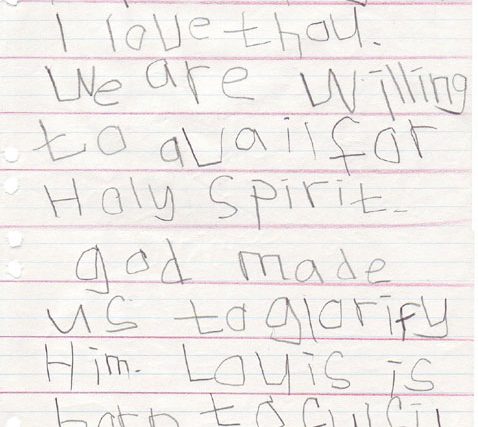 I love thou.
We are willing
to avail for
Holy Spirit.
god made
us to glorify
Him. Louis is